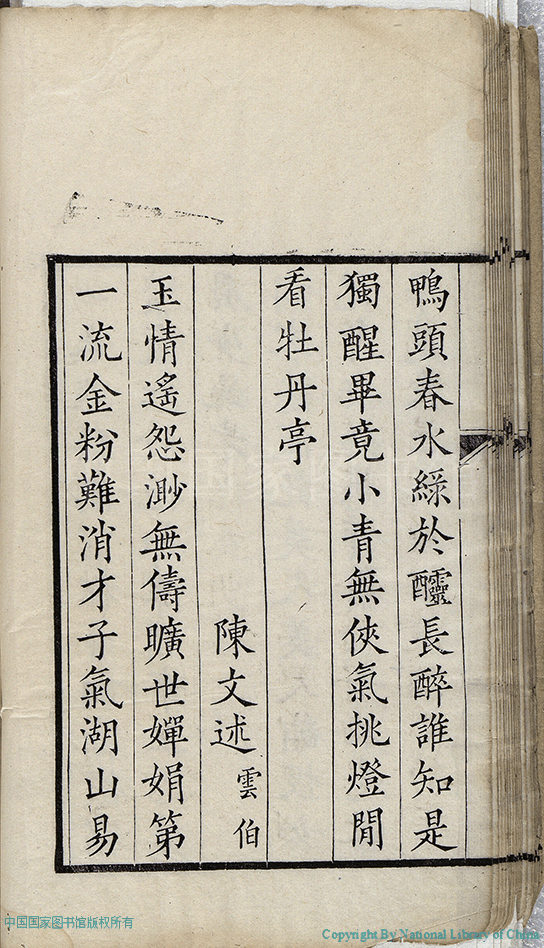 鴨頭春水綠於醽長醉誰知是
獨醒畢竟小青無俠氣挑燈閒
看牡丹亭
陳文述雲伯
玉情遙怨渺無儔曠世嬋娟第
一流金粉難消才子氣湖山易
中国国家图书馆版权所有
Copyright By National Library of China